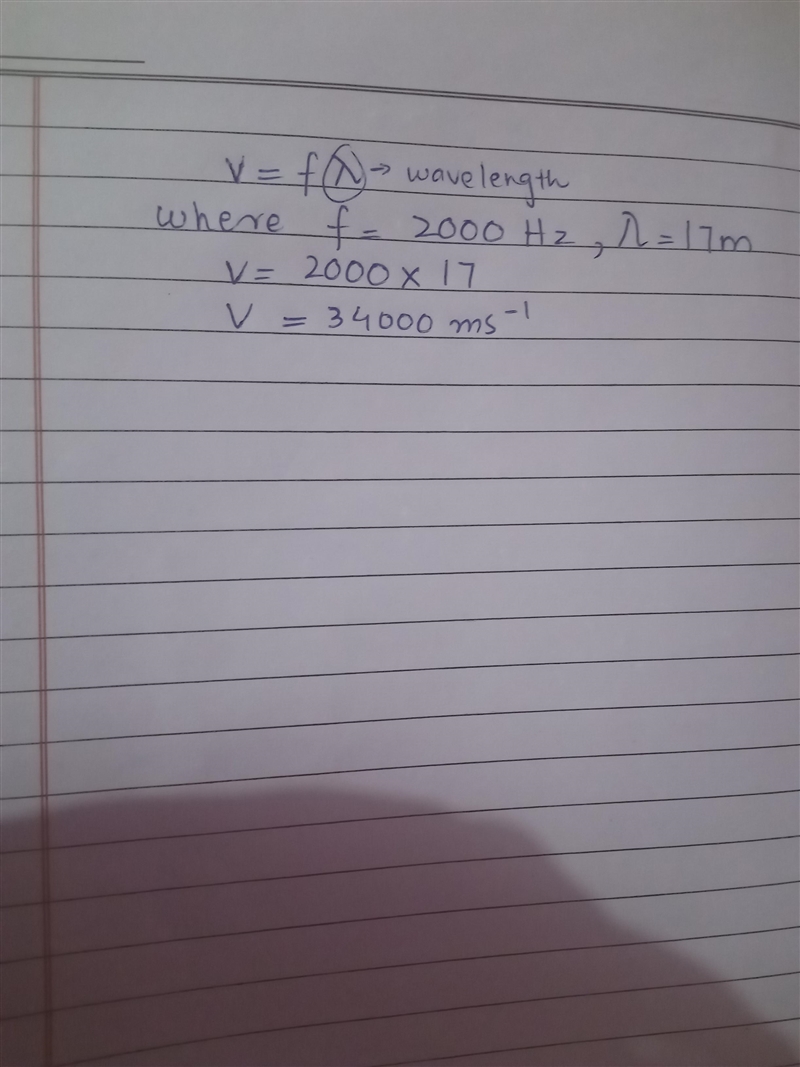 V = fλ → wavelength
where f = 2000 Hz, λ = 17m
V = 2000 × 17
V = 34000 ms⁻¹